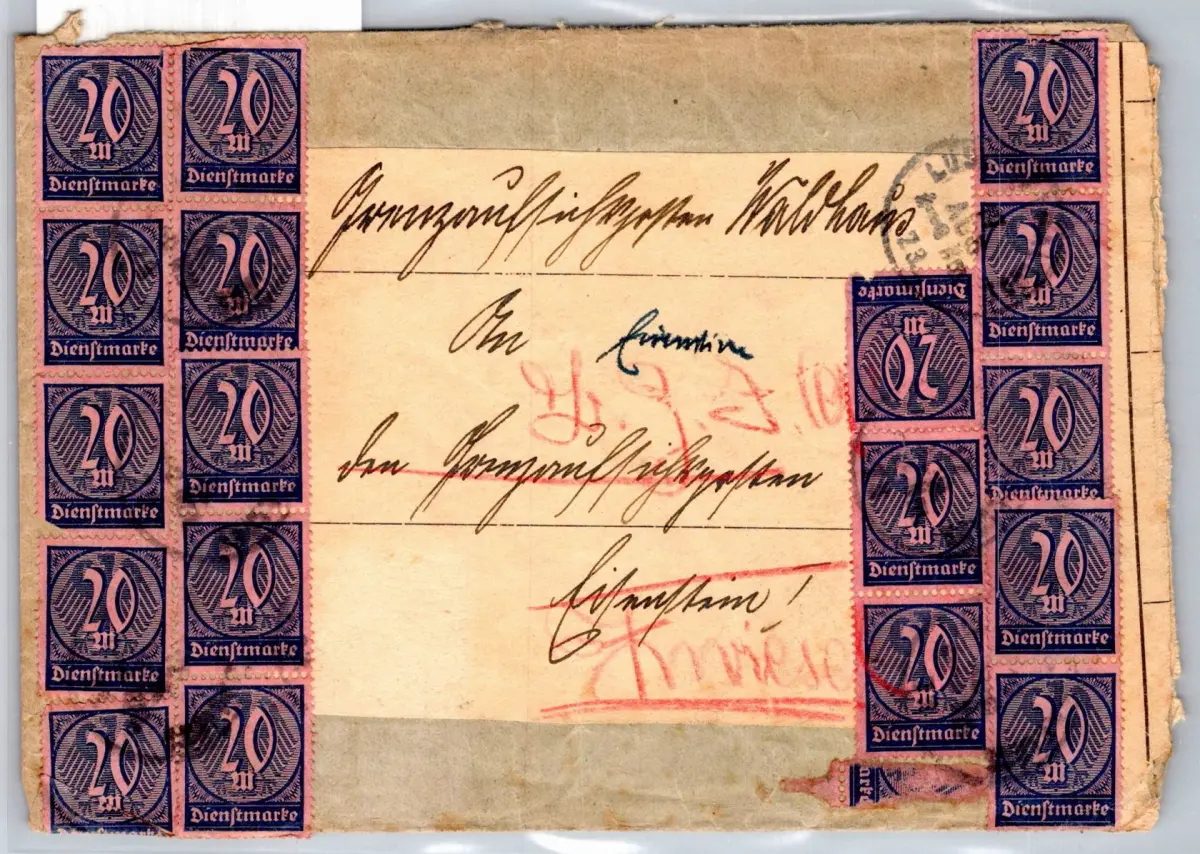 20 M Dienstmarke
20 M Dienstmarke
20 M Dienstmarke
20 M Dienstmarke
20 M Dienstmarke
20 M Dienstmarke
20 M Dienstmarke
20 M Dienstmarke
20 M Dienstmarke
20 M Dienstmarke
Grenzaufsichtsposten Waldhaus
An
den Grenzaufsichtsposten
Eisenstein!
20 M Dienstmarke
20 M Dienstmarke
20 M Dienstmarke
20 M Dienstmarke
20 M Dienstmarke
20 M Dienstmarke
20 M Dienstmarke
20 M Dienstmarke